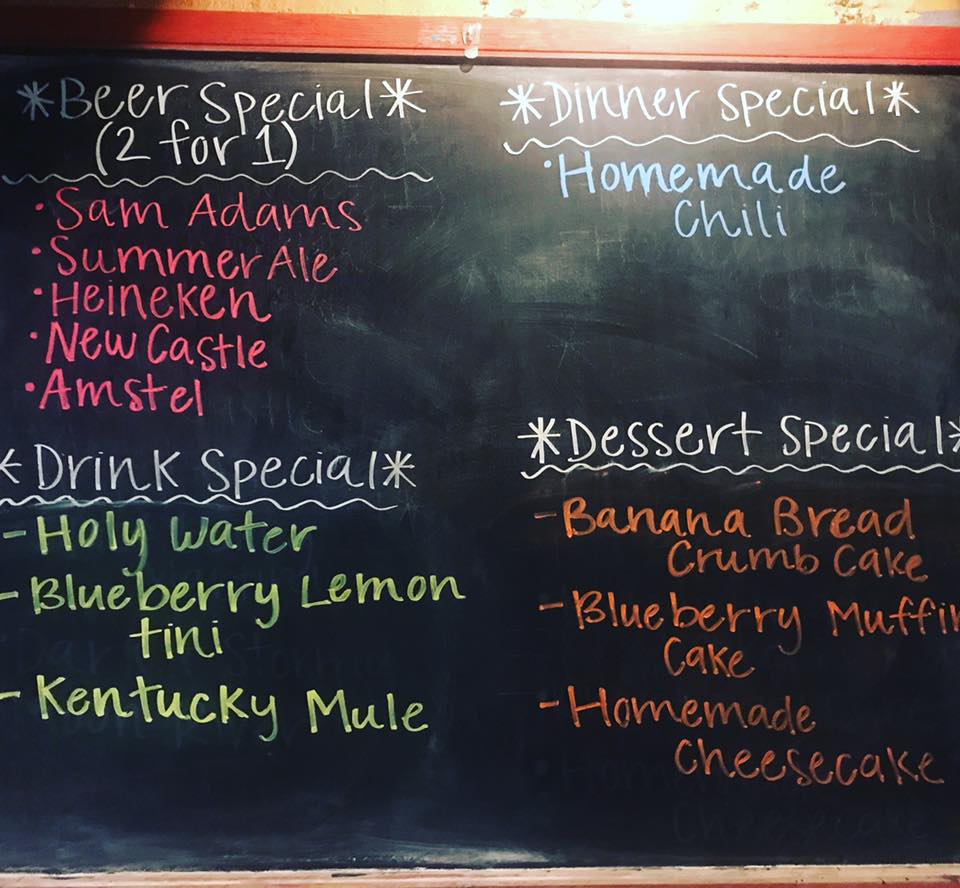 *Beer Special*
(2 for 1)
·Sam Adams
·Summer Ale
·Heineken
·New Castle
·Amstel
*Drink Special*
-Holy Water
-Blueberry Lemon
tini
-Kentucky Mule
*Dinner Special*
·Homemade
Chili
*Dessert Special*
-Banana Bread
Crumb Cake
-Blueberry Muffin
Cake
-Homemade
Cheesecake